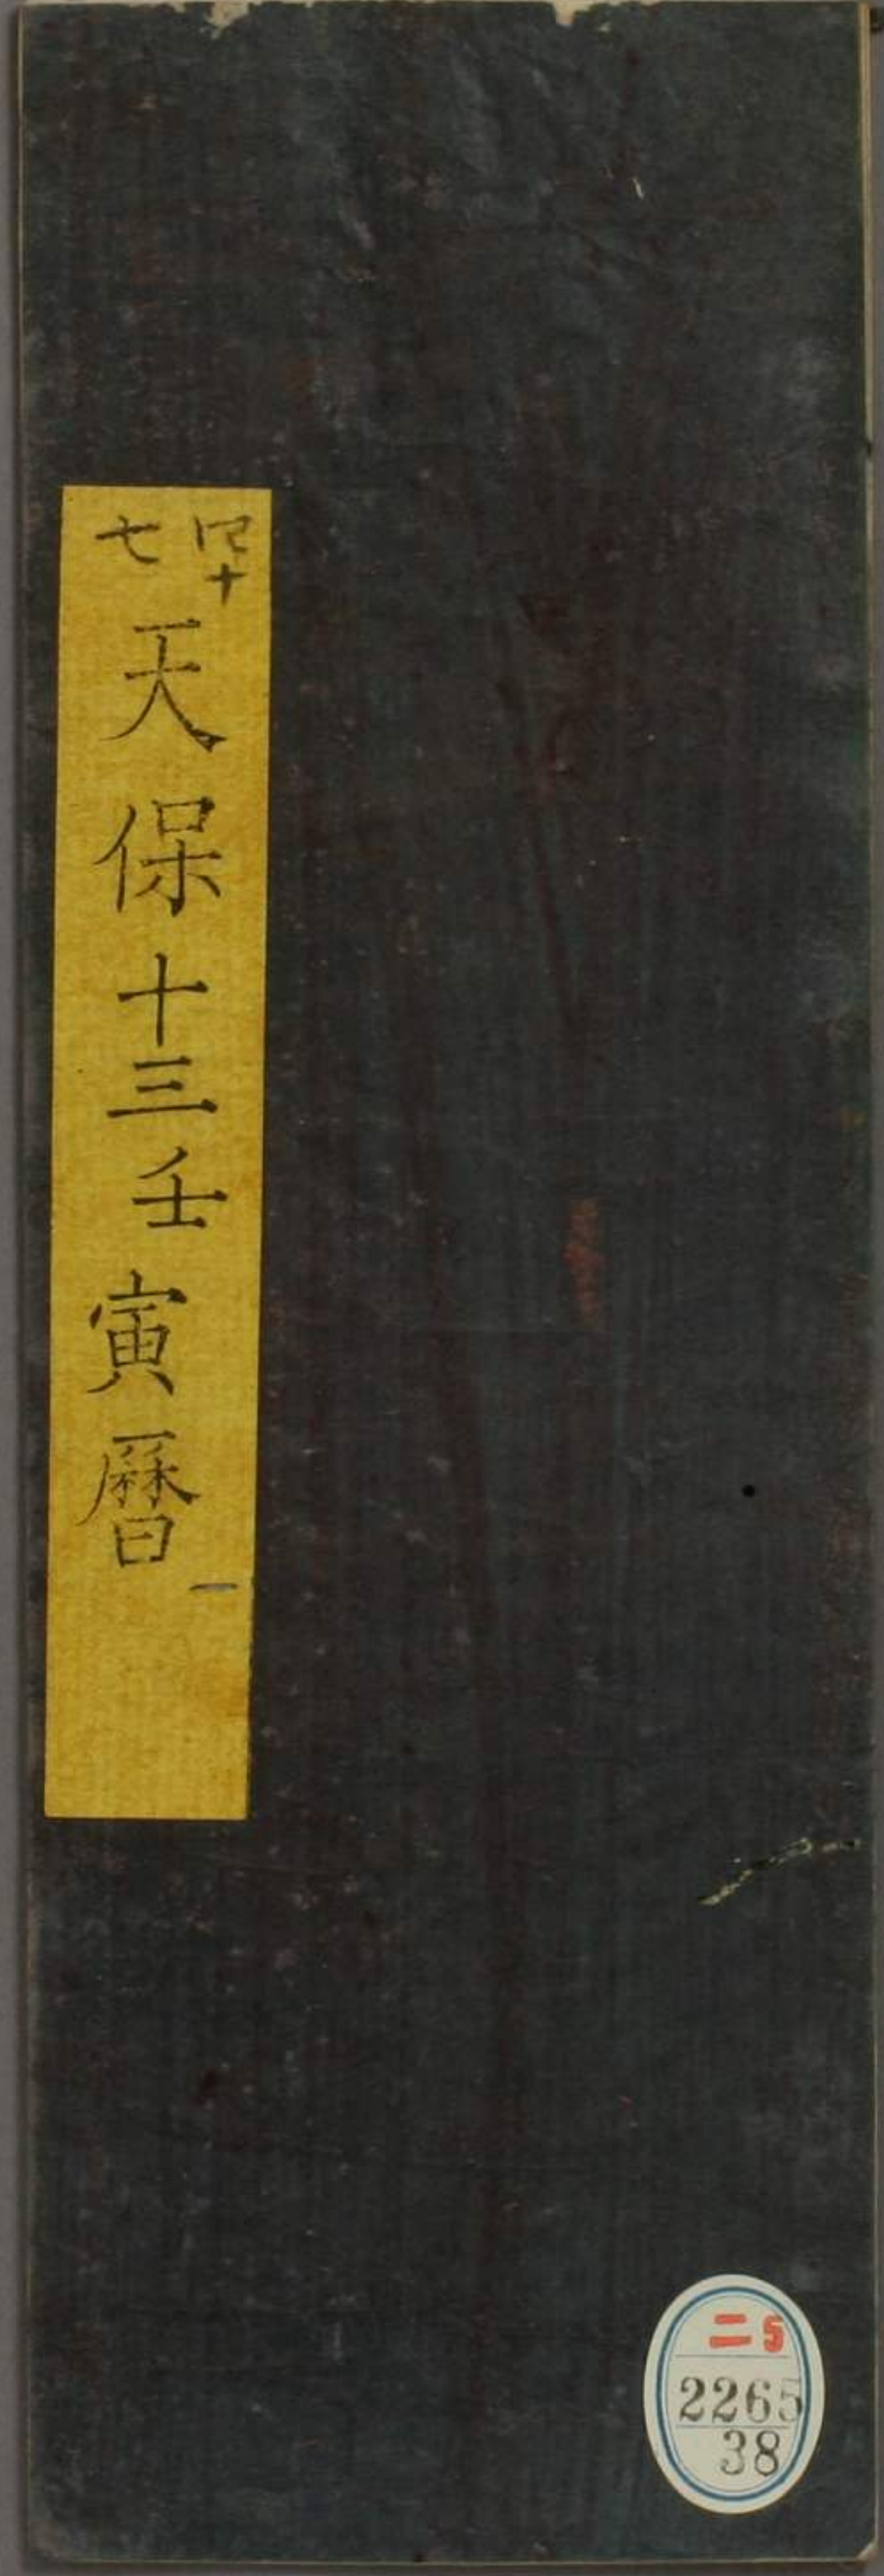 四十
七
天保十三壬寅暦
一
二5
2265
38